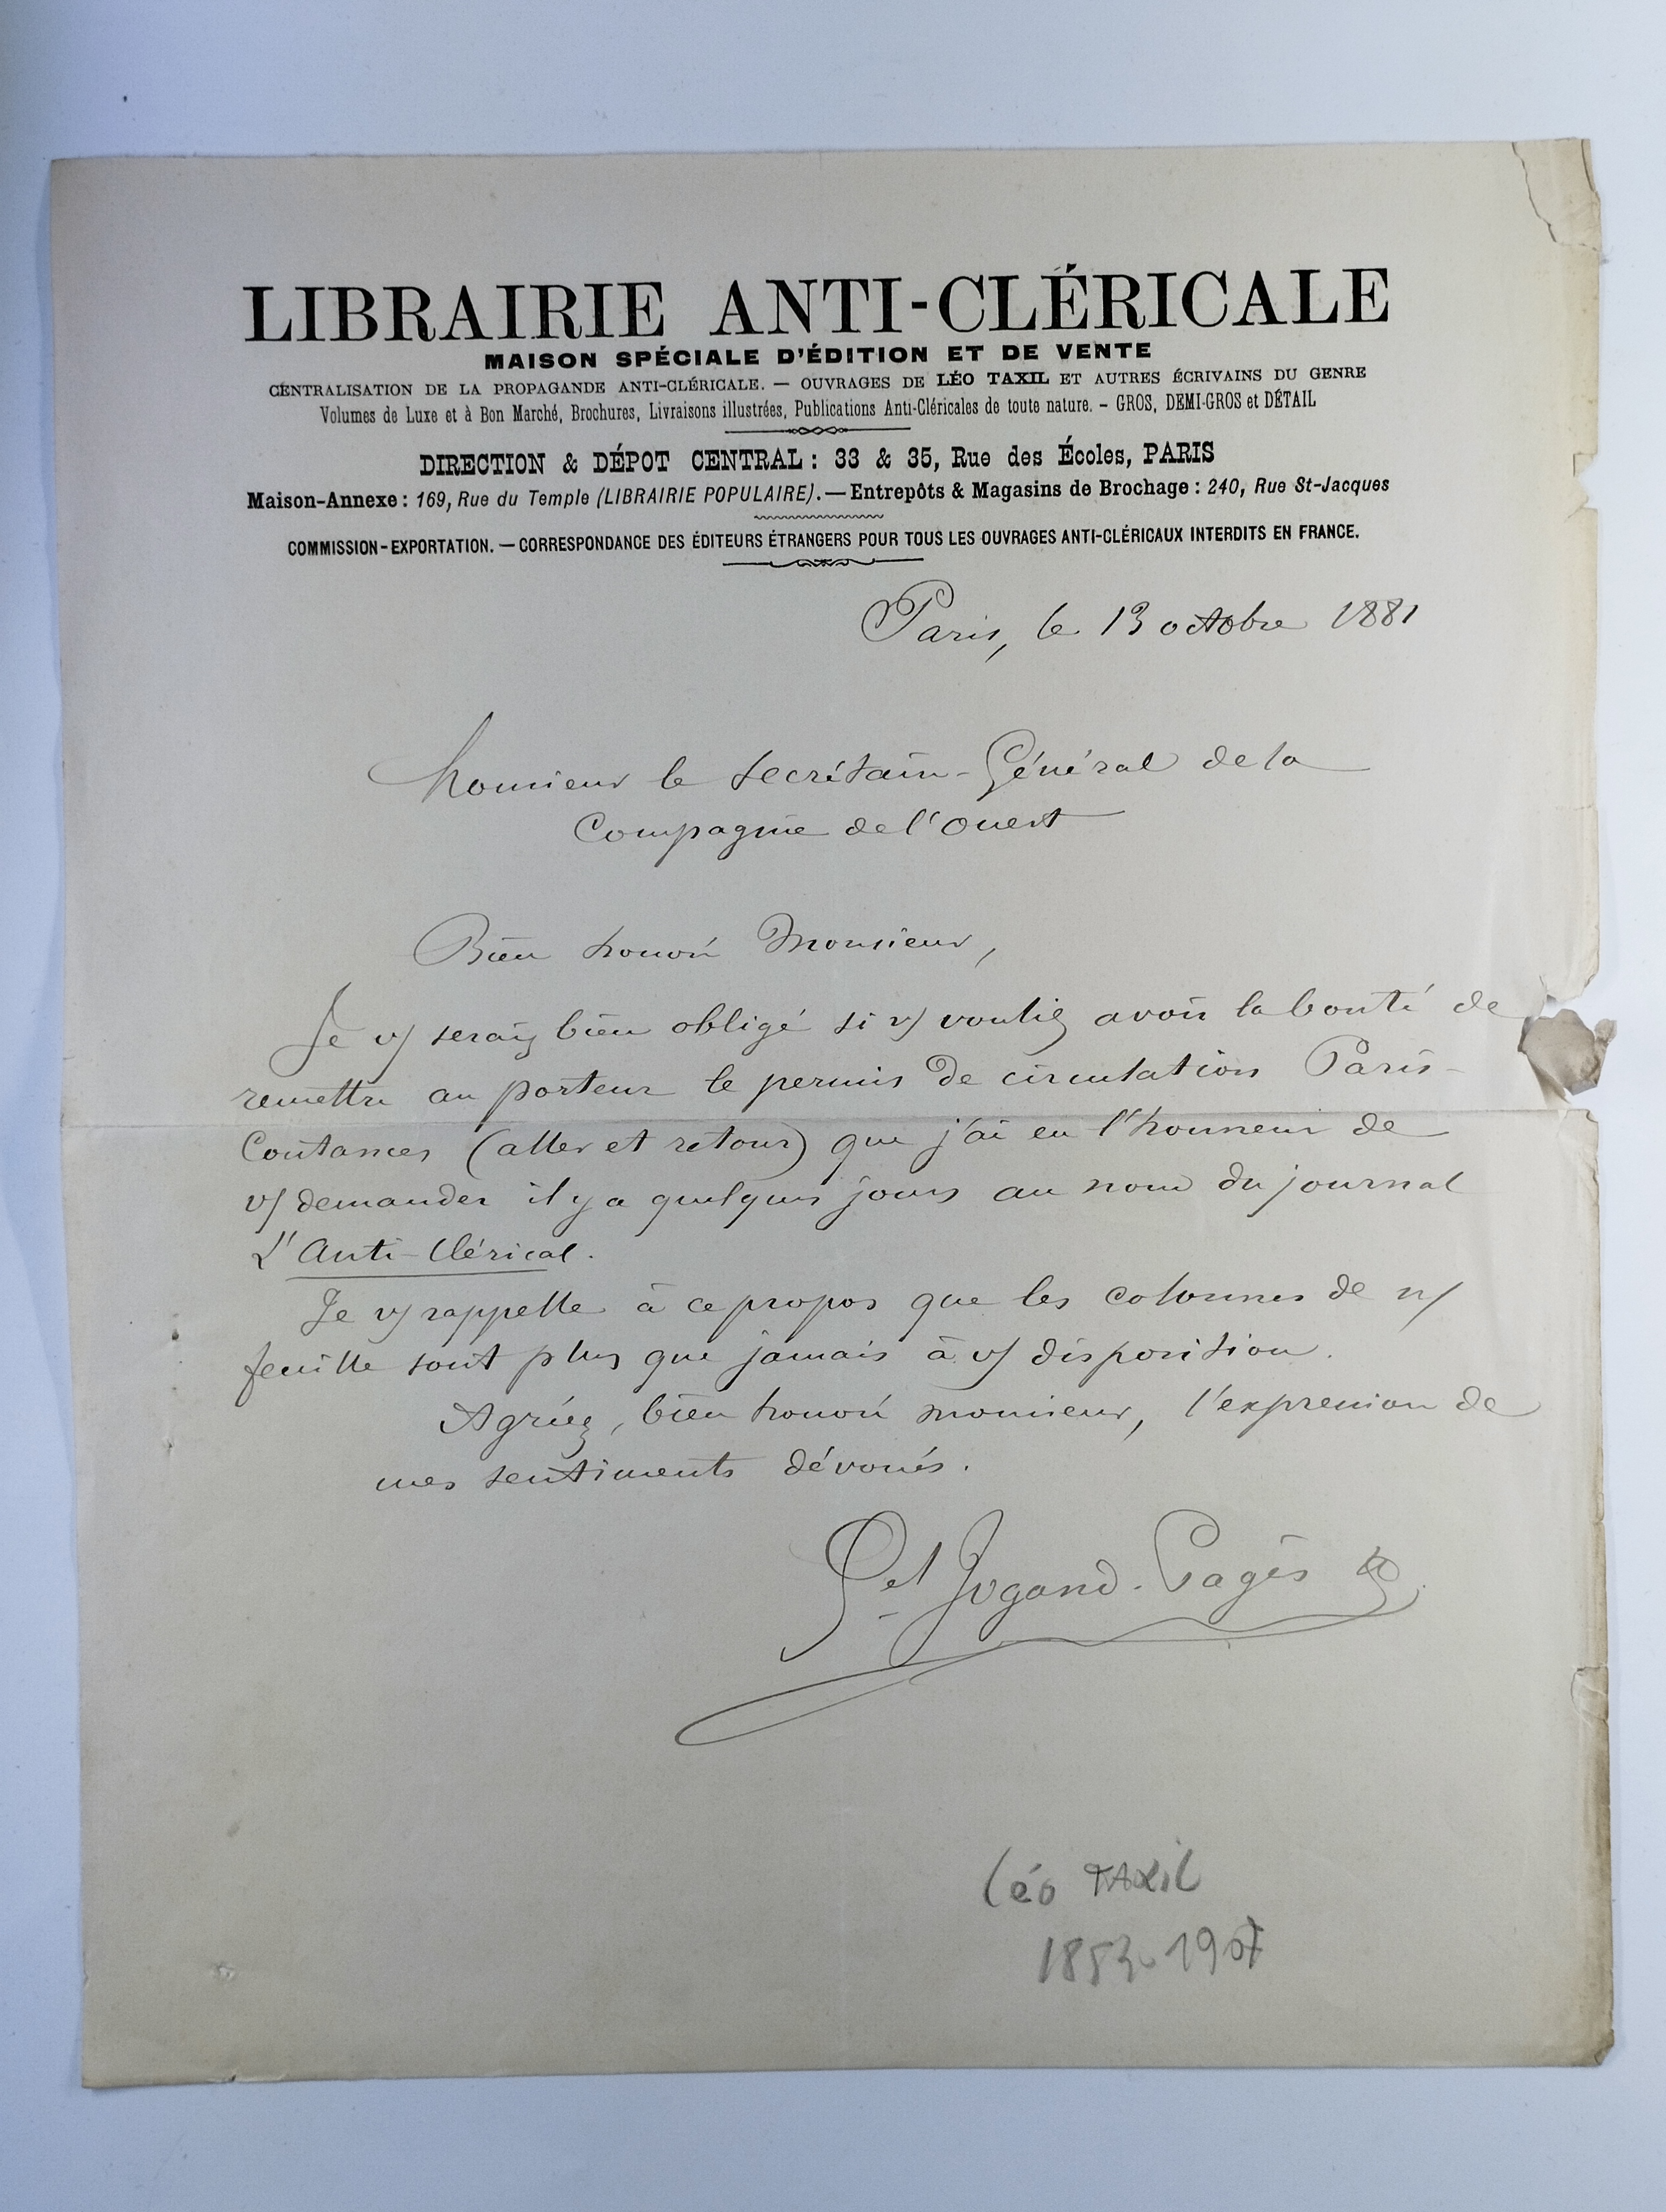 LIBRAIRIE ANTI-CLÉRICALE
MAISON SPÉCIALE D'ÉDITION ET DE VENTE
CENTRALISATION DE LA PROPAGANDE ANTI-CLÉRICALE. — OUVRAGES DE LÉO TAXIL ET AUTRES ÉCRIVAINS DU GENRE
Volumes de Luxe et à Bon Marché, Brochures, Livraisons illustrées, Publications Anti-Cléricales de toute nature. – GROS, DEMI-GROS et DÉTAIL
DIRECTION & DÉPOT CENTRAL : 33 & 35, Rue des Écoles, PARIS
Maison-Annexe : 169, Rue du Temple (LIBRAIRIE POPULAIRE). — Entrepôts & Magasins de Brochage : 240, Rue St-Jacques
COMMISSION-EXPORTATION. — CORRESPONDANCE DES ÉDITEURS ÉTRANGERS POUR TOUS LES OUVRAGES ANTI-CLÉRICAUX INTERDITS EN FRANCE.
Paris, le 13 octobre 1881
Monsieur le Secrétaire-Général de la
Compagnie de l'Ouest
Bien honoré Monsieur,
Je v/ serais bien obligé si v/ vouliez avoir la bonté de
remettre au porteur le permis de circulation Paris-
Coutances (aller et retour) que j'ai eu l'honneur de
v/ demander il y a quelques jours au nom du journal
L'Anti-Clérical.
Je v/ rappelle à ce propos que les colonnes de n/
feuille sont plus que jamais à v/ disposition.
Agréez, bien honoré monsieur, l'expression de
mes sentiments dévoués.
Gel Jogand-Pagès
Léo TAXIL
1853-1907